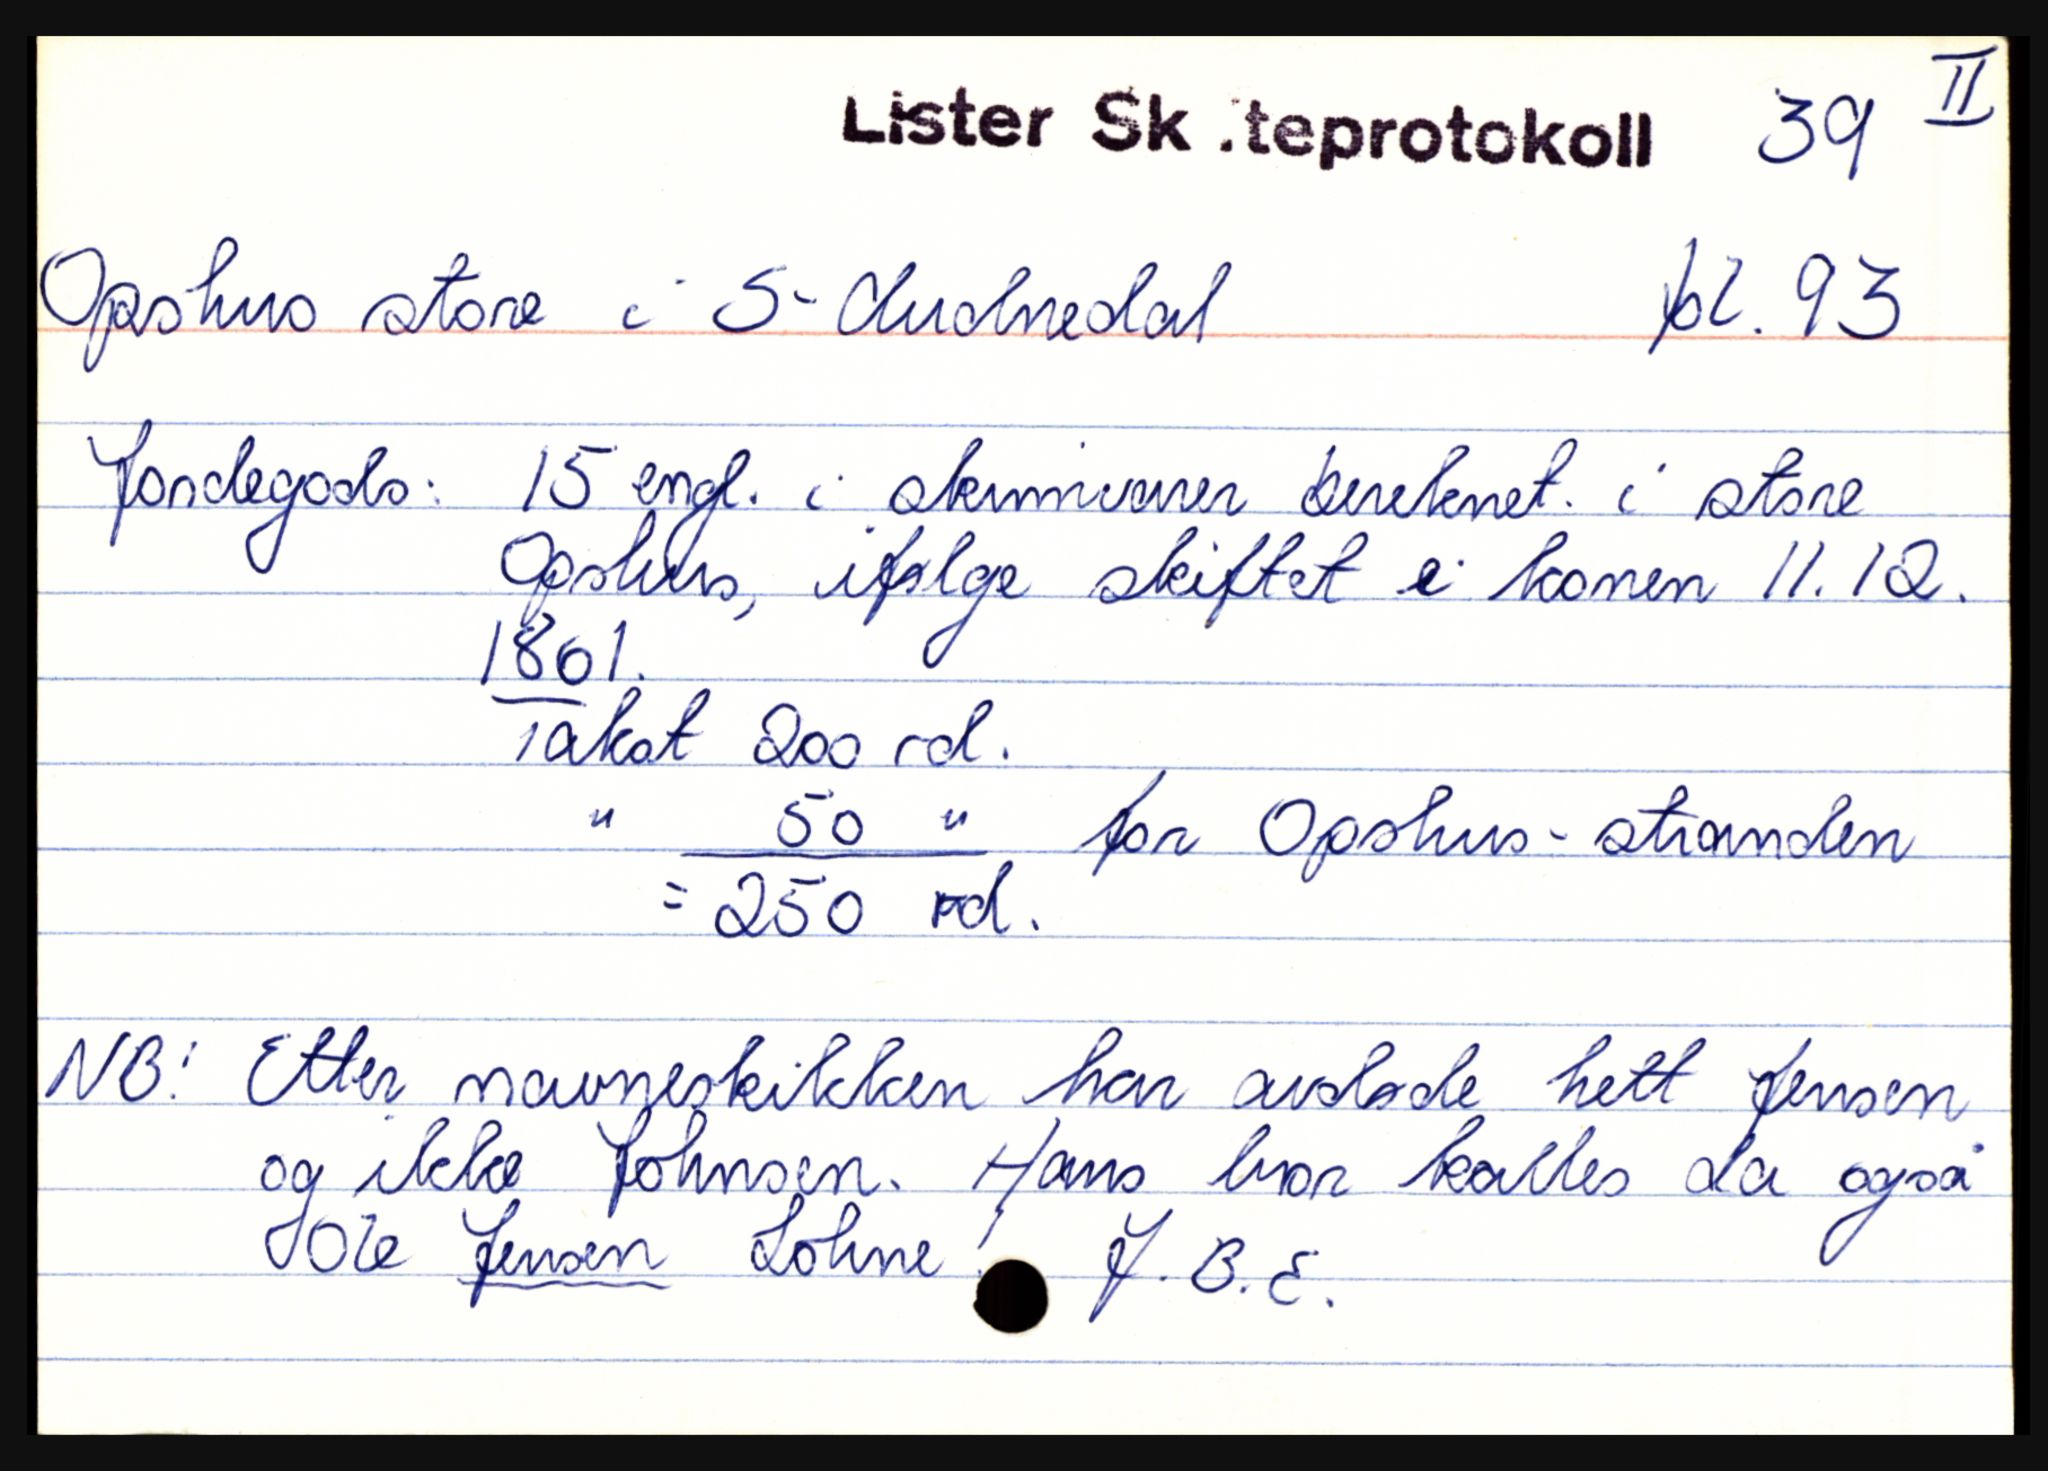 Lister Sk teprotokoll 39 II
Opshus store i S-Audnedal fol. 93
Jordegods: 15 engl. i skinnvarer bereknet. i store
Opshus, ifølge skiftet e konen 11.12.
1801.
Takst 200 rd.
" 50 " for Opshus-stranden
= 250 rd.
NB! Etter navneskikken har avdøde hett Jensen
og ikke Johnsen. Hans bror kalles da også
Ole Jensen Lohne! J. B. E.